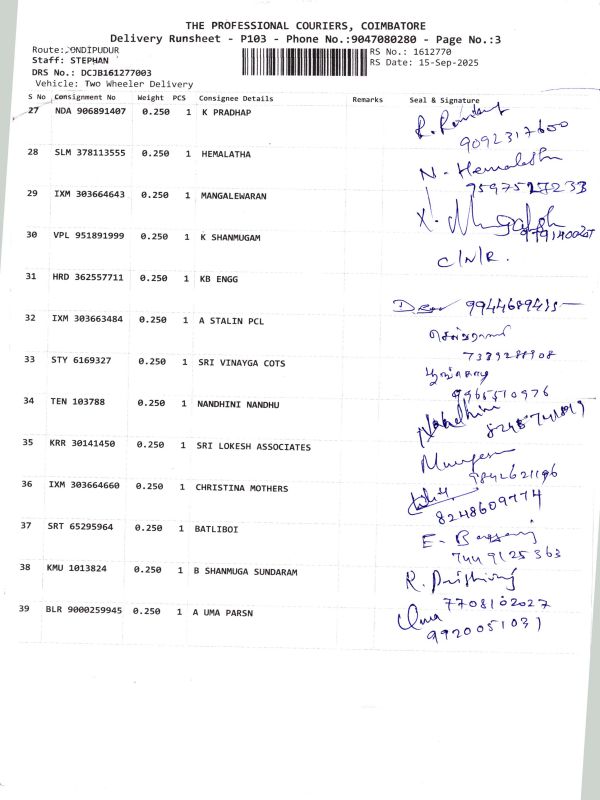 THE PROFESSIONAL COURIERS, COIMBATORE
Delivery Runsheet - P103 - Phone No.:9047080280 - Page No.:3
Route: ONDIPUDUR
RS No.: 1612770
Staff: STEPHAN
RS Date: 15-Sep-2025
DRS No.: DCJB161277003
Vehicle: Two Wheeler Delivery
S No Consignment No Weight PCS Consignee Details Remarks Seal & Signature
27 NDA 906891407 0.250 1 K PRADHAP
9092317600
28 SLM 378113555 0.250 1 HEMALATHA N. Hemalatha
7597527233
29 IXM 303664643 0.250 1 MANGALEWARAN
30 VPL 951891999 0.250 1 K SHANMUGAM
C/N/R.
31 HRD 362557711 0.250 1 KB ENGG
32 IXM 303663484 0.250 1 A STALIN PCL
33 STY 6169327 0.250 1 SRI VINAYGA COTS
9965510976
34 TEN 103788 0.250 1 NANDHINI NANDHU Nandhini
35 KRR 30141450 0.250 1 SRI LOKESH ASSOCIATES
9842621196
36 IXM 303664660 0.250 1 CHRISTINA MOTHERS
8248609774
37 SRT 65295964 0.250 1 BATLIBOI E.
7449125363
38 KMU 1013824 0.250 1 B SHANMUGA SUNDARAM R.
7708102027
39 BLR 9000259945 0.250 1 A UMA PARSN Uma
9920051031